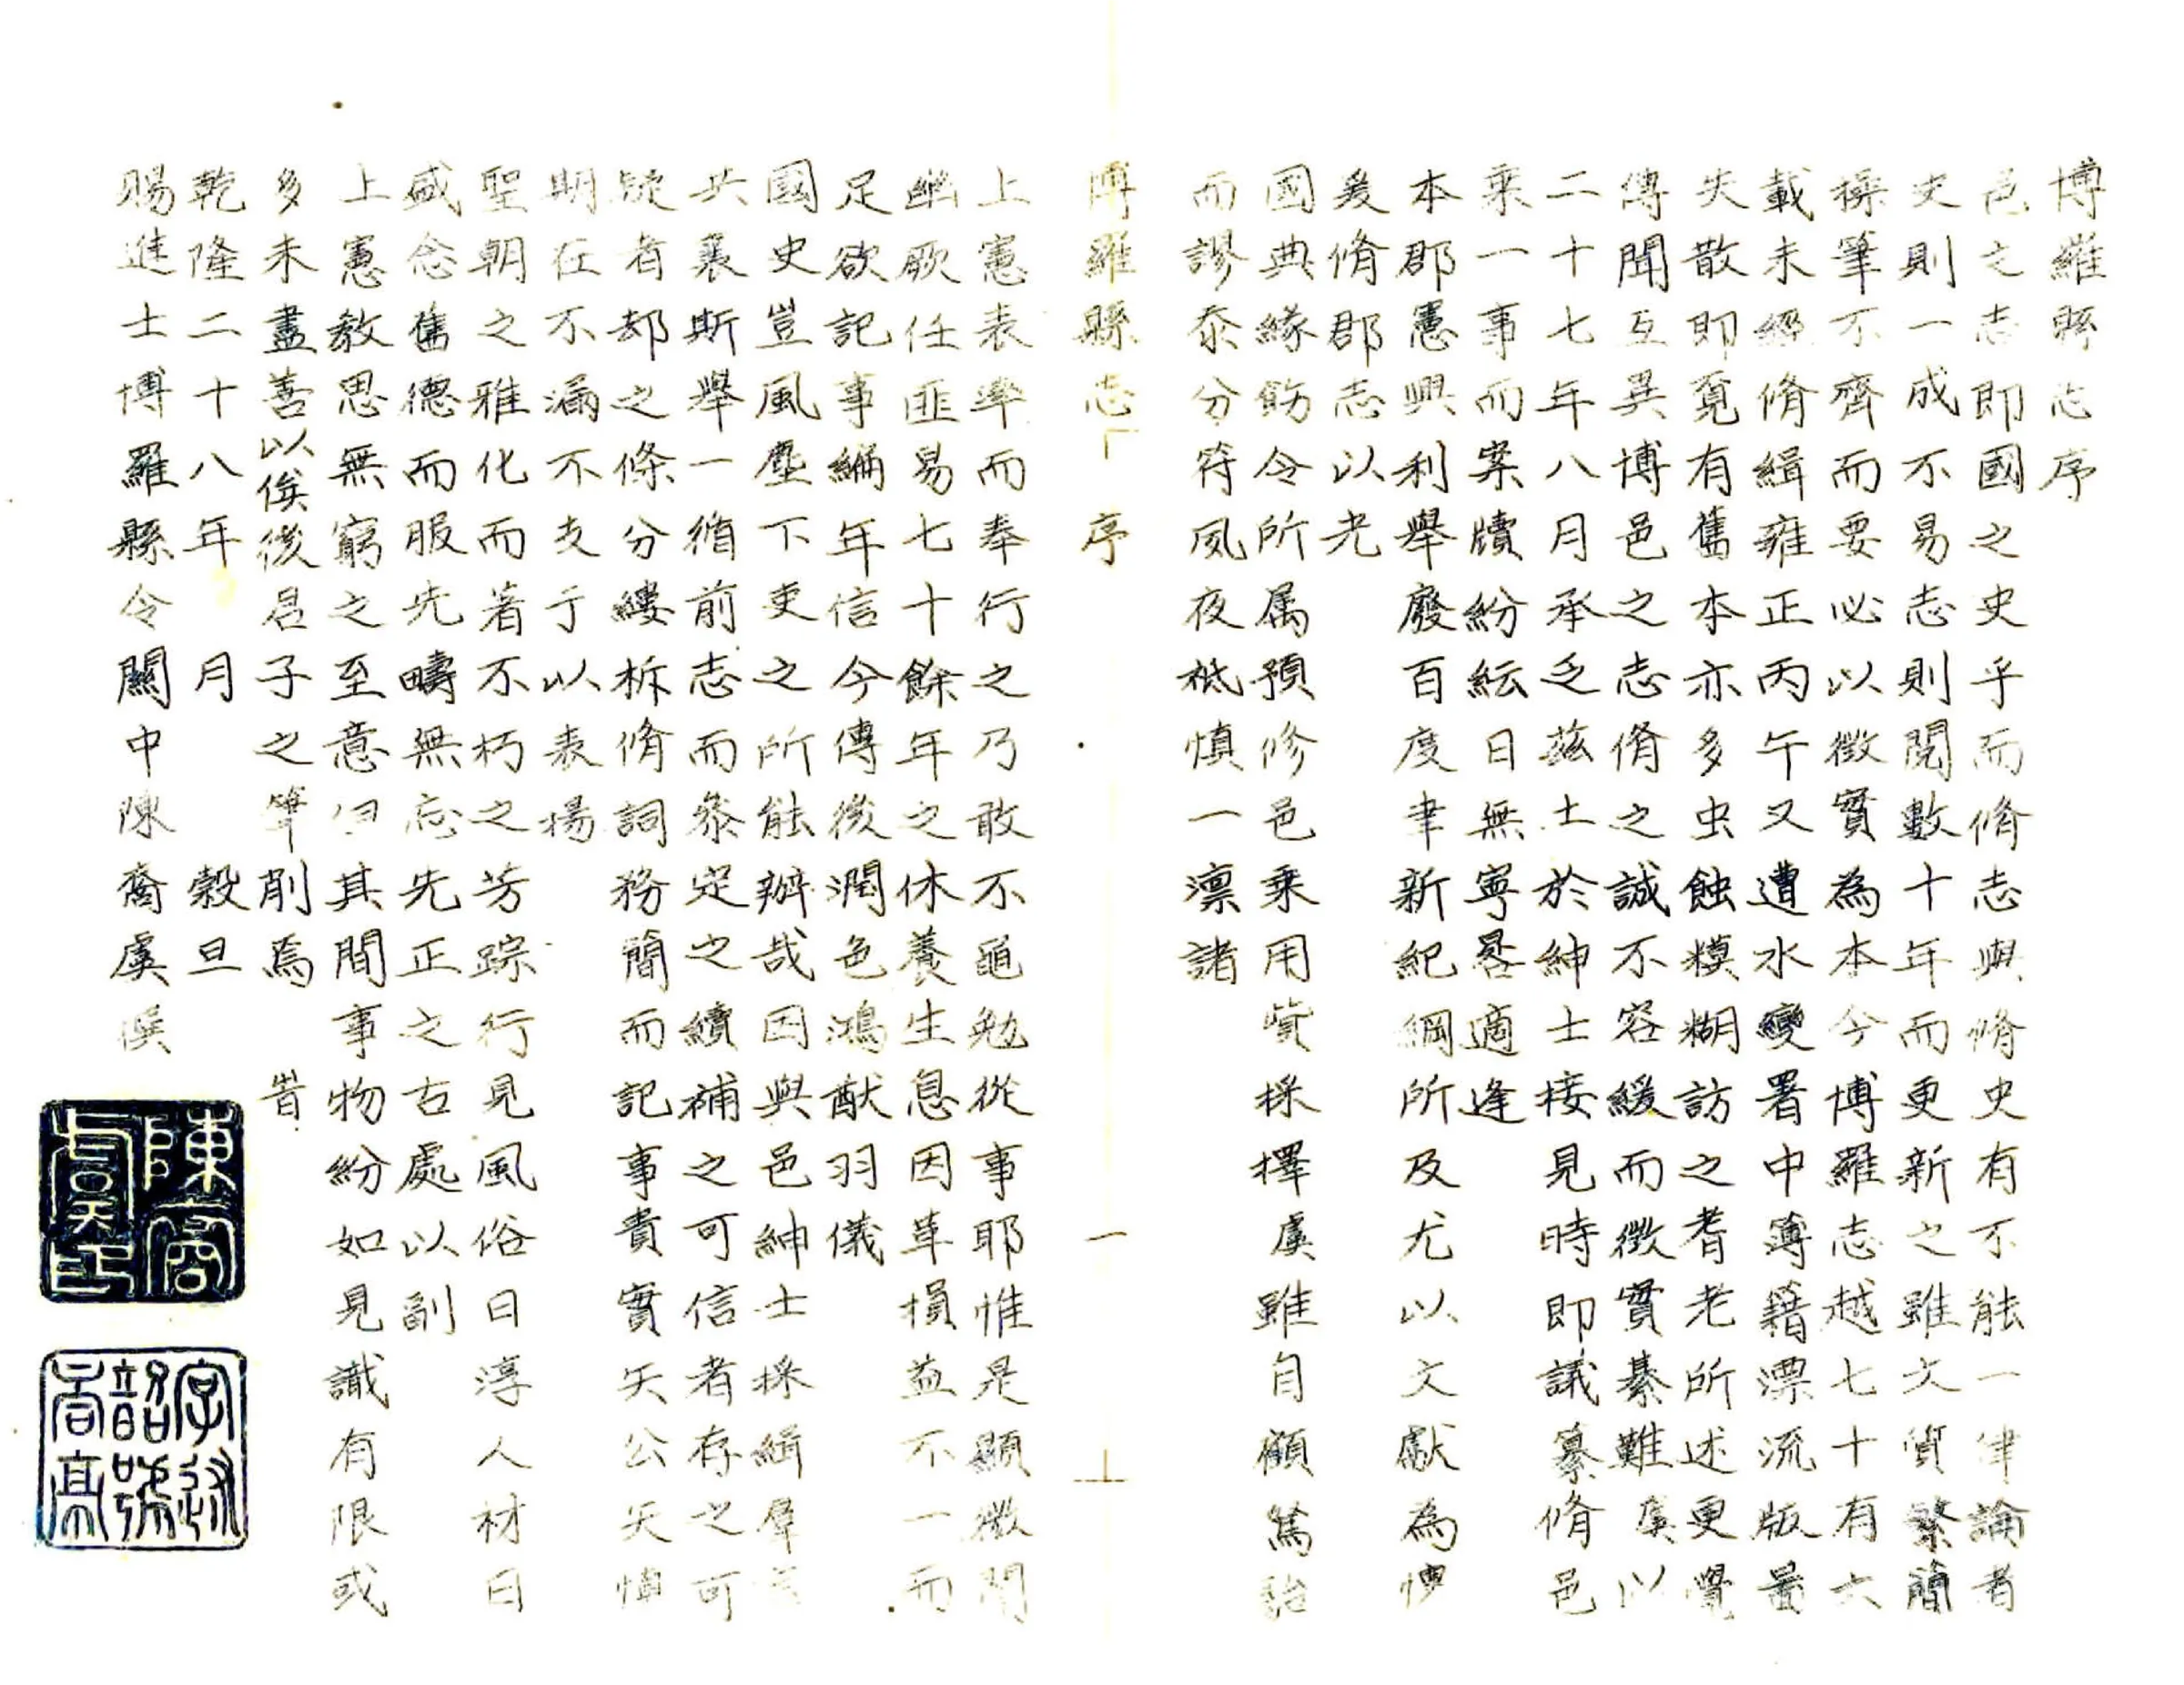 博羅縣志序
邑之志即國之史乎而脩志與脩史有不能一律論者
史則一成不易志則閱數十年而更新之雖文質繁簡
操筆不齊而要必以徵實為本今博羅志越七十有六
載未經脩緝雍正丙午又遭水變署中簿籍漂流版圖
失散即覓有舊本亦多虫蝕糢糊訪之耆老所述更覺
傳聞互異博邑之志脩之誠不容緩而徵實綦難虞以
二十七年八月承乏茲土於紳士接見時即議纂脩邑
乘一事而案牘紛紜日無寧晷適逢
本郡憲興利舉廢百度聿新紀綱所及尤以文獻為
爰脩郡志以光
國典緣飭令所属預修邑乘用資採擇虞雖自顧駑駘
而謬忝分符夙夜祗慎一凛諸
博羅縣志 序 一
上憲表率而奉行之乃敢不黽勉從事耶惟是顯微闡
幽厥任匪易七十餘年之休養生息因革損益不一而
足欲記事編年信今傳後潤色鴻猷羽儀
國史豈風塵下吏之所能辦哉因與邑紳士採緝羣
共襄斯舉一循前志而叅定之續補之可信者存之可
疑者却之條分縷析脩詞務簡而記事貴實矢公矢慎
期在不漏不支于以表揚
聖朝之雅化而著不朽之芳踪行見風俗日淳人材日
盛念舊德而服先疇無忘先正之古處以副
上憲教思無窮之至意但其間事物紛如見識有限或
多未盡善以俟後君子之筆削焉 旹
乾隆二十八年 月 穀旦
賜進士博羅縣令關中陳裔虞撰
陳裔虞印
字遜詔號喬高